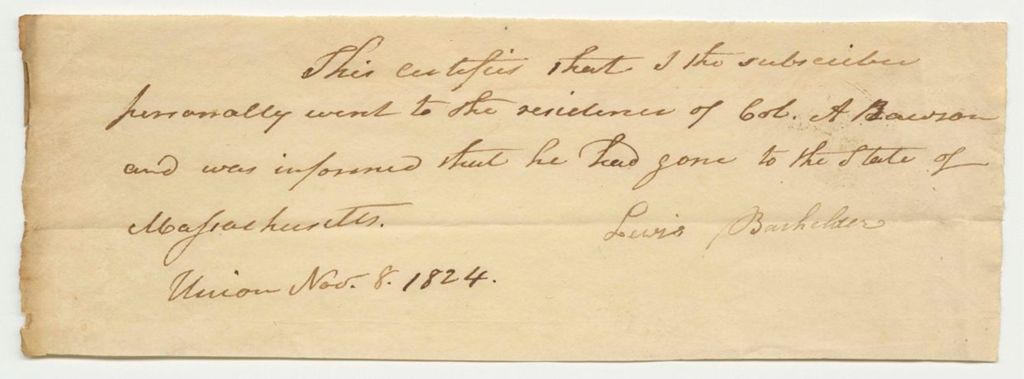 This certifies that I the subscriber
personally went to the residence of Col. A Rawson
and was informed that he had gone to the State of
Massachusetts.
Lewis Bachelder
Union Nov. 8. 1824.